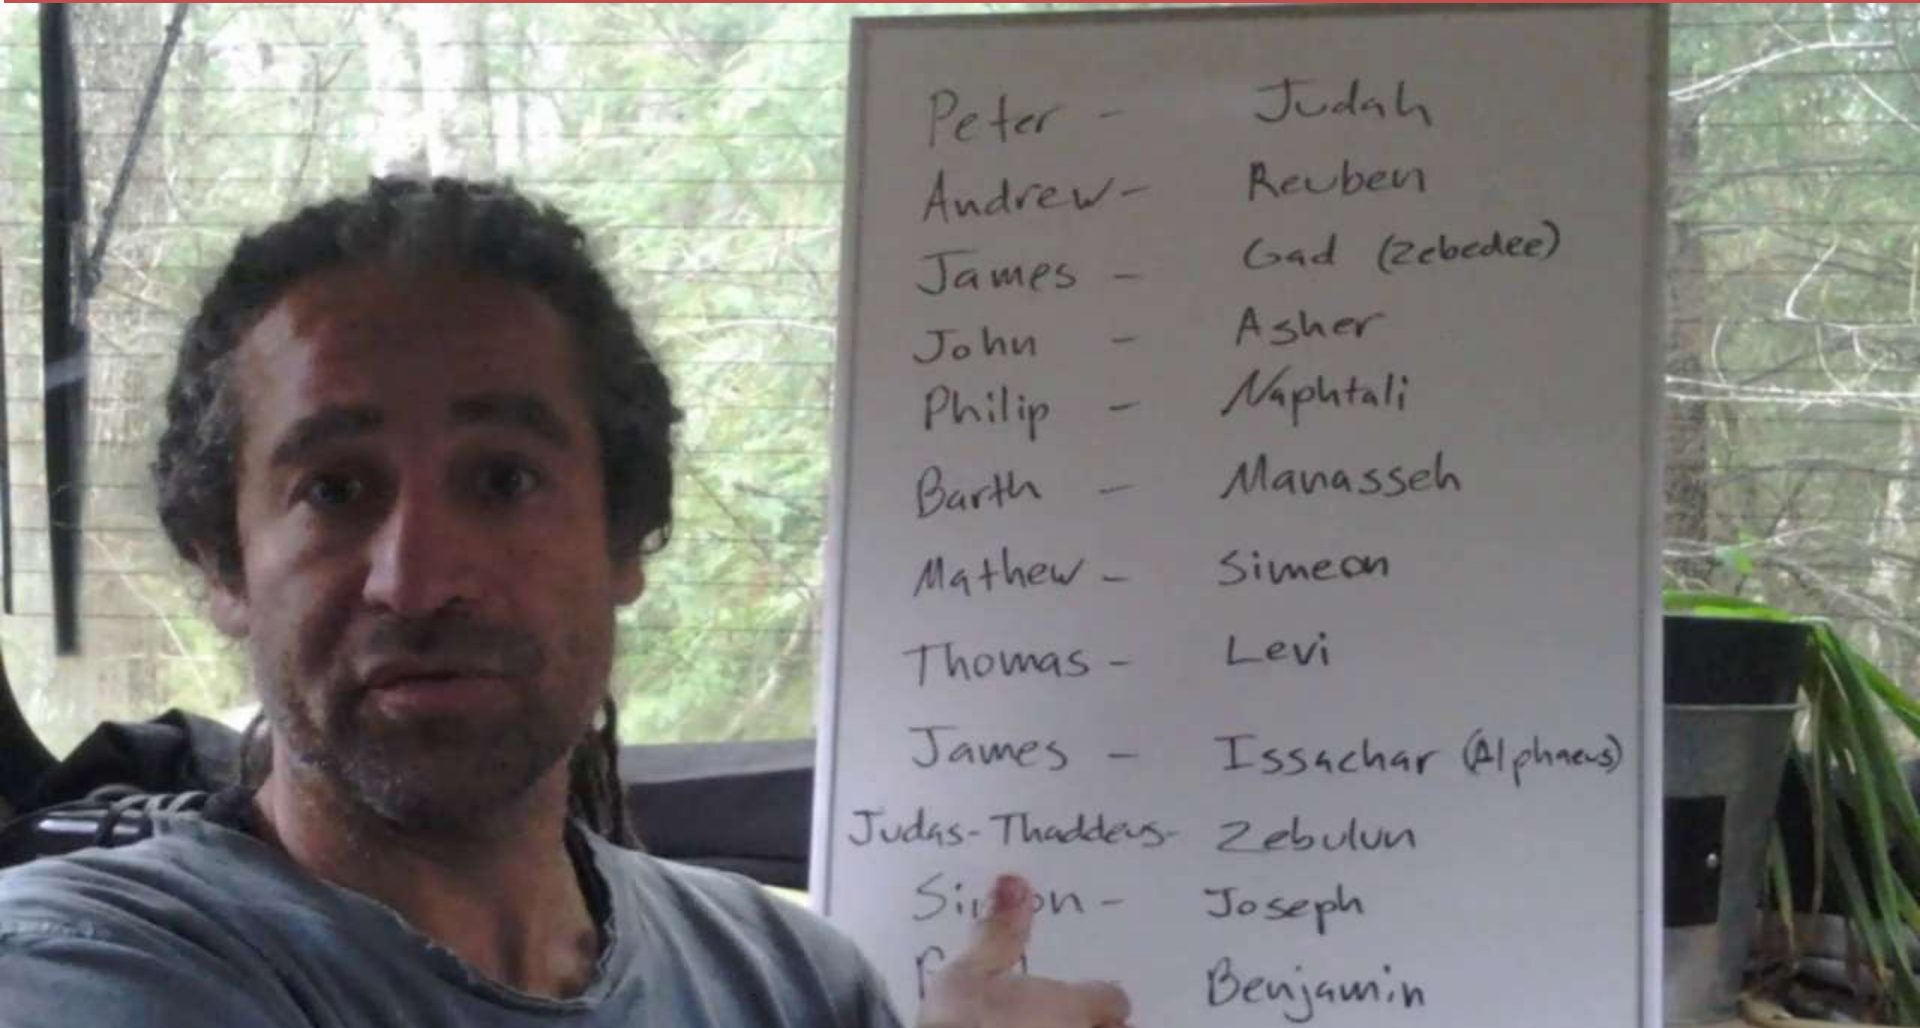 Peter - Judah
Andrew - Reuben
James - Gad (Zebedee)
John - Asher
Philip - Naphtali
Barth - Manasseh
Mathew - Simeon
Thomas - Levi
James - Issachar (Alphaeus)
Judas-Thaddeus- Zebulun
Simon - Joseph
- Benjamin